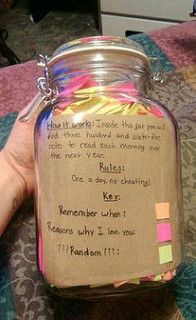 How it works: Inside this jar you will
find three hundred and sixty-five
notes to read each morning over
the next year.
Rules:
One a day, no cheating!
Key:
Remember when:
Reasons why I love you:
???Random!!!: